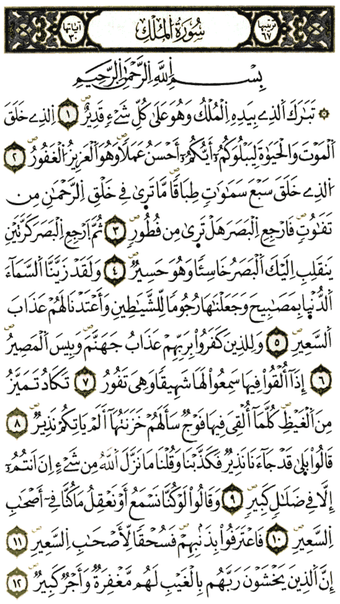 ترتيبها ٦٧ سُورَةُ الْمُلْكِ آياتها ٣٠
بِسْمِ اللهِ الرَّحْمَٰنِ الرَّحِيمِ
۞ تَبَٰرَكَ الذِے بِيَدِهِ الْمُلْكُ وَهُوَ عَلَىٰ كُلِّ شَےْءٍ قَدِيرٌ ١ الذِے خَلَقَ
الْمَوْتَ وَالْحَيَوٰةَ لِيَبْلُوَكُمُۥٓ أَيُّكُمُۥٓ أَحْسَنُ عَمَلاً وَهُوَ الْعَزِيزُ الْغَفُورُ ٢
الذِے خَلَقَ سَبْعَ سَمَٰوَٰتٍ طِبَاقاً مَّا تَرِىٰ فِے خَلْقِ الرَّحْمَٰنِ مِن
تَفَٰوُتٍ فَارْجِعِ الْبَصَرَ هَلْ تَرِىٰ مِن فُطُورٍ ٣ ثُمَّ اَرْجِعِ الْبَصَرَ كَرَّتَيْنِ
يَنقَلِبِ اِلَيْكَ الْبَصَرُ خَاسِئاً وَهُوَ حَسِيرٌ ٤ وَلَقَدْ زَيَّنَّا السَّمَآءَ
الدُّنْيَا بِمَصَٰبِيحَ وَجَعَلْنَٰهَا رُجُوماً لِّلشَّيَٰطِينِ وَأَعْتَدْنَا لَهُمْ عَذَابَ
السَّعِيرِ ٥ وَلِلذِينَ كَفَرُواْ بِرَبِّهِمْ عَذَابُ جَهَنَّمَ وَبِيسَ الْمَصِيرُ
٦ إِذَآ أُلْقُواْ فِيهَا سَمِعُواْ لَهَا شَهِيقاً وَهِيَ تَفُورُ ٧ تَكَادُ تَمَيَّزُ
مِنَ الْغَيْظِ كُلَّمَآ أُلْقِيَ فِيهَا فَوْجٌ سَأَلَهُمْ خَزَنَتُهَآ أَلَمْ يَاتِكُمْ نَذِيرٌ ٨
قَالُواْ بَلِىٰ قَدْ جَآءَنَا نَذِيرٌ فَكَذَّبْنَا وَقُلْنَا مَا نَزَّلَ اَللهُ مِن شَےْءٍ اِنَ اَنتُمُۥٓ
إِلَّا فِے ضَلَٰلٍ كَبِيرٍ ٩ وَقَالُواْ لَوْ كُنَّا نَسْمَعُ أَوْ نَعْقِلُ مَا كُنَّا فِےٓ أَصْحَٰبِ
السَّعِيرِ ١٠ فَاعْتَرَفُواْ بِذَنۢبِهِمْ فَسُحْقاً لِّأَصْحَٰبِ السَّعِيرِ ١١
إِنَّ الذِينَ يَخْشَوْنَ رَبَّهُم بِالْغَيْبِ لَهُم مَّغْفِرَةٌ وَأَجْرٌ كَبِيرٌ ١٢